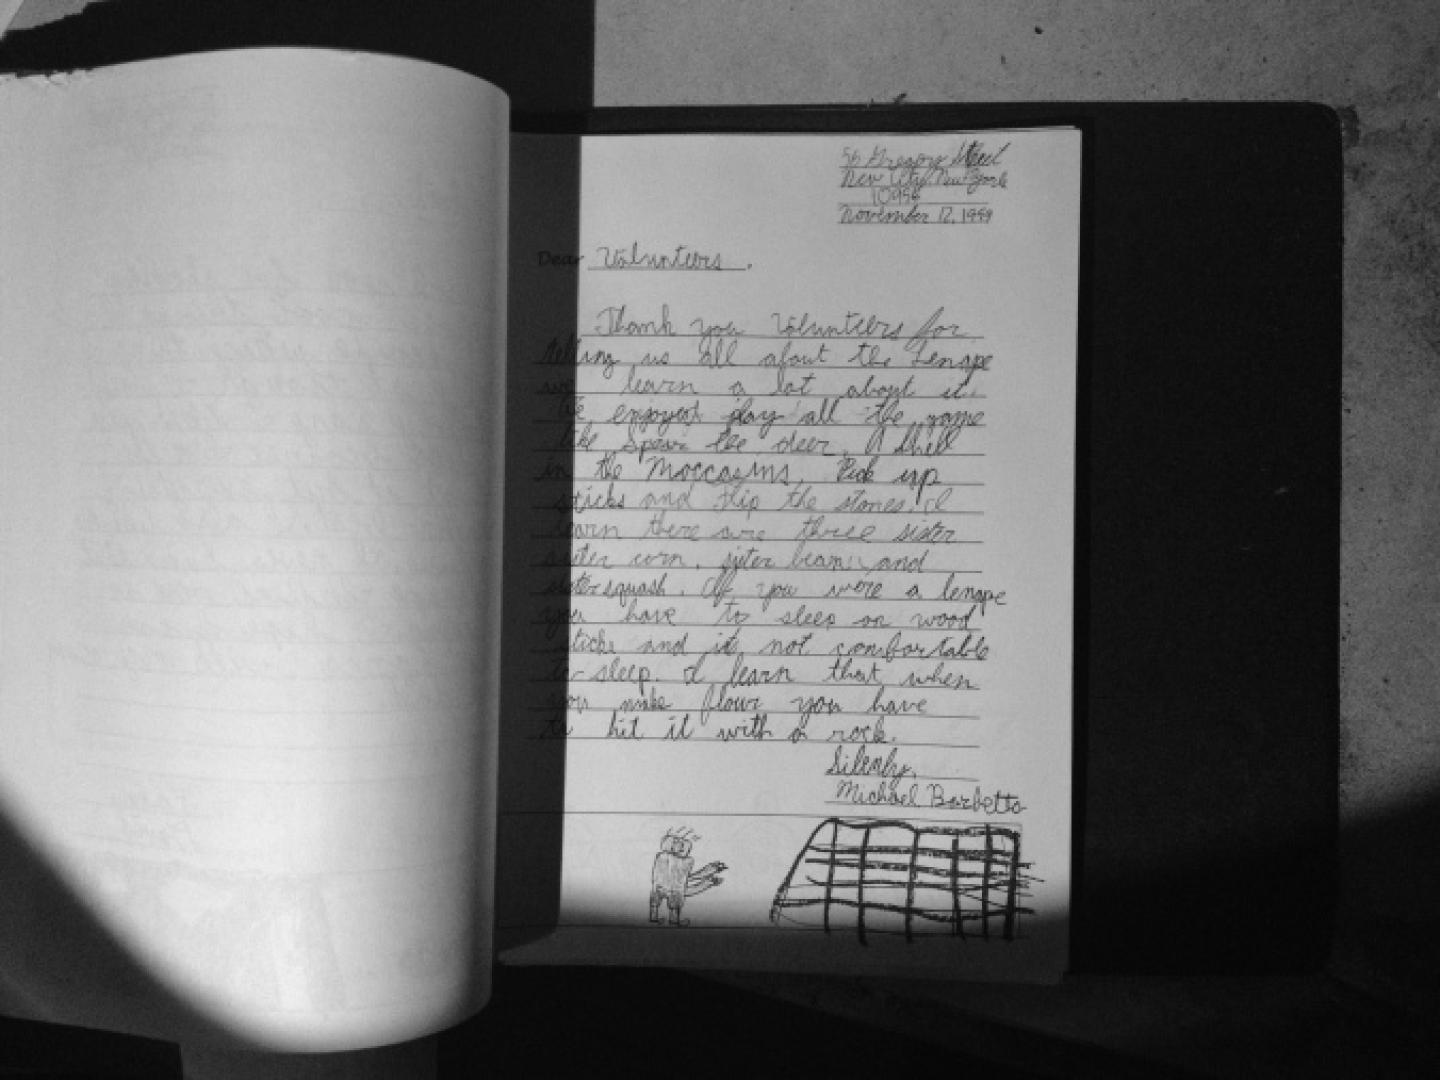 56 Gregory Street
New City, New York
10956
November 12, 1999
Dear Volunteers,
Thank you Volunteers for
telling us all afout the Lenape
we learn a lot about it.
We enjoyed play all the game
like Spear the deer, A Shell
in the Moccasins, Pick up
sticks and flip the stones. I
learn there are three sister
sister corn, sister beans and
sister squash. If you were a lenape
you have to sleep on wood
sticks and it not comfortable
to sleep. I learn that when
you make flour you have
to hit it with a rock.
Silenly,
Michael Barbetto